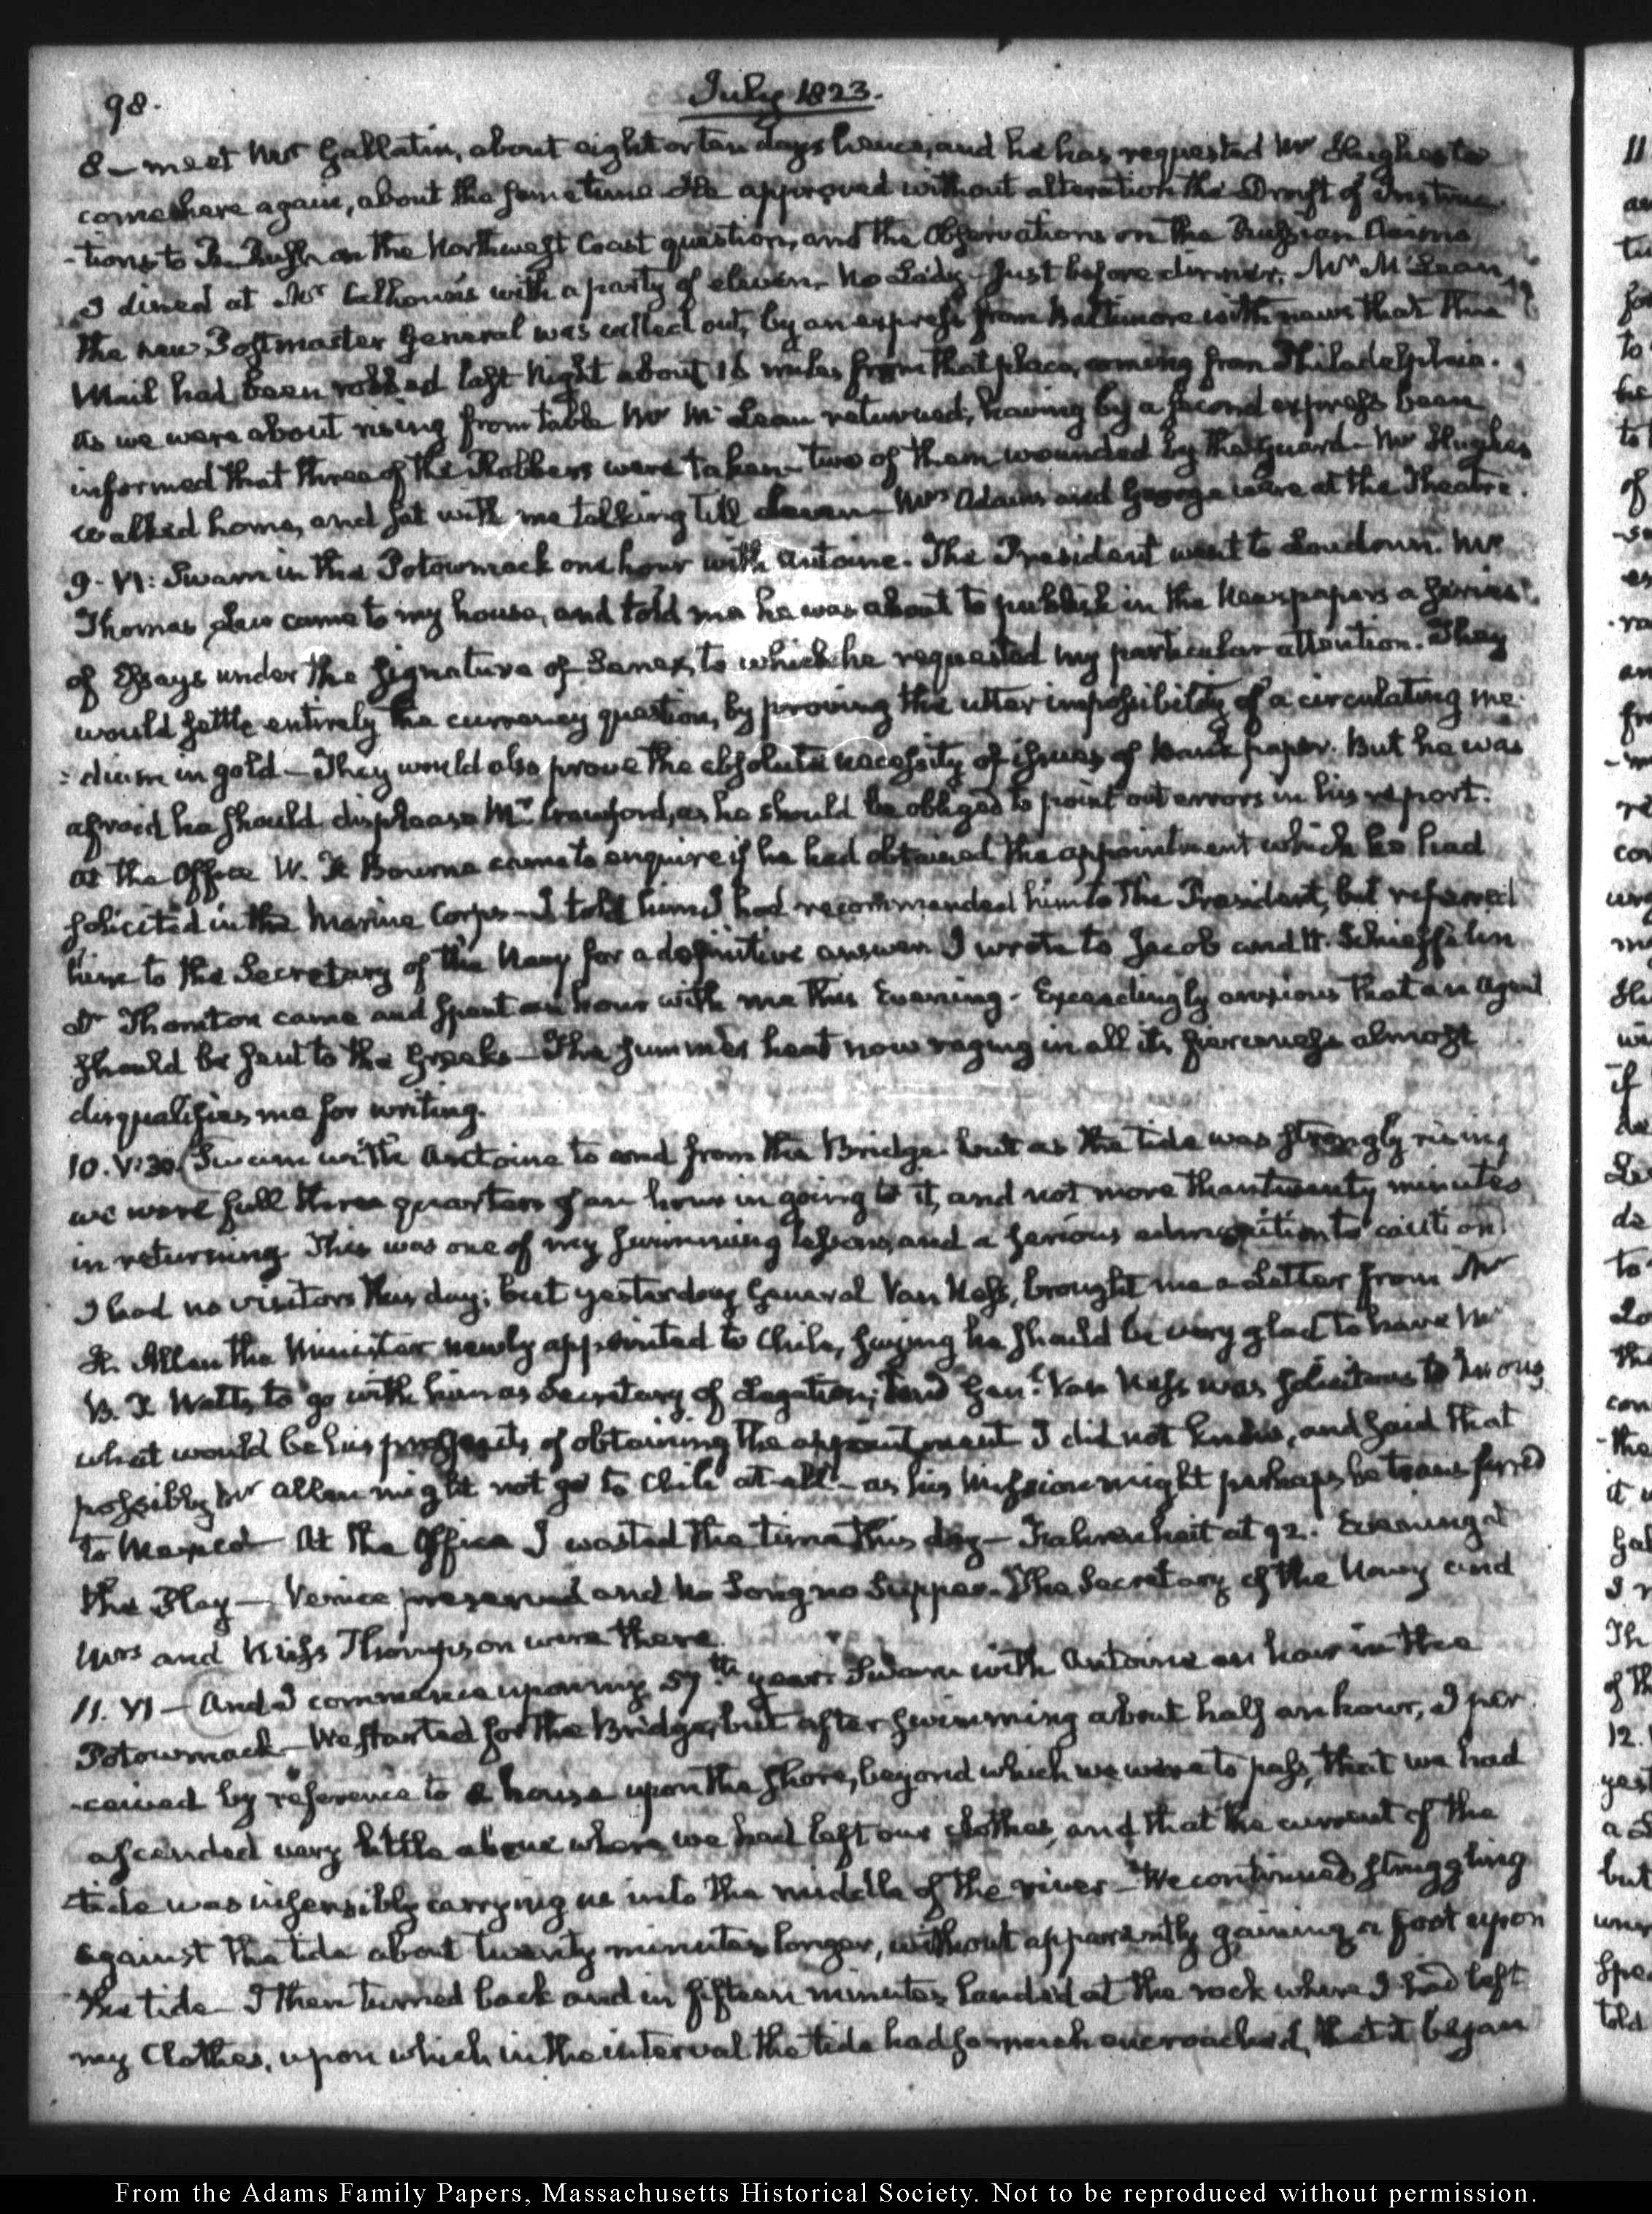 98.
July 1823.
8 — meet Mr Gallatin, about eight or ten days hence, and he has requested Mr Hughes to
come here again, about the same time. He approved without alteration the Draft of Instruc
-tions to R. Rush on the Northwest Coast question, and the Observations on the Russian Claims
I dined at Mr Calhoun's with a party of eleven. No Lady — Just before dinner, Mr McLean,
the new Postmaster General was called out, by an express from Baltimore with news that the
Mail had been robbed last Night about 18 miles from that place, coming from Philadelphia.
As we were about rising from table Mr McLean returned; having by a second express been
informed that three of the Robbers were taken — two of them wounded by the guard — Mr Hughes
walked home, and sat with me talking till eleven — Mrs Adams and George were at the Theatre.
9. VI: Swam in the Potowmack one hour with Antoine. The President went to Loudoun. Mr
Thomas Law came to my house, and told me he was about to publish in the Newspapers a series
of Essays under the signature of Senex, to which he requested my particular attention. They
would settle entirely the currency question, by proving the utter impossibility of a circulating me-
:dium in gold — They would also prove the absolute necessity of issues of Bank paper. But he was
afraid he should displease Mr Crawford, as he should be obliged to point out errors in his report.
At the Office W. Bourne came to enquire if he had obtained the appointment which he had
solicited in the Marine Corps — I told him I had recommended him to the President, but referred
him to the Secretary of the Navy for a definitive answer. I wrote to Jacob and H. Schieffelin
Dr Thornton came and spent an hour with me this Evening. Exceedingly anxious that an Agent
should be sent to the Greeks — The summer heat now raging in all its fierceness almost
disqualifies me for writing.
10. V:30. Swam with Antoine to and from the Bridge. but as the tide was strongly rising
we were full three quarters of an hour in going to it, and not more than twenty minutes
in returning. This was one of my swimming lessons, and a serious admonition to caution.
I had no visitors this day; but yesterday General Van Ness, brought me a Letter from Mr
H. Allen the Minister newly appointed to Chile, saying he should be very glad to have Mr
B. Watts, to go with him as Secretary of Legation; and Genl. Van Ness was solicitous to know
what would be his prospects of obtaining the appointment. I did not know, and said that
possibly Mr Allen might not go to Chile at all — as his Mission might perhaps be transferred
to Mexico — At the Office I wasted the time this day — Fahrenheit at 92. Evening at
the Play — Venice preserved and No Song no Supper. The Secretary of the Navy and
Mrs and Miss Thompson were there.
11. VI — And I commence upon my 57th year. Swam with Antoine an hour in the
Potowmack — We started for the Bridge, but after swimming about half an hour, I per
-ceived by reference to a house upon the shore, beyond which we were to pass, that we had
ascended very little above where we had left our clothes, and that the current of the
tide was insensibly carrying us into the middle of the river — We continued struggling
against the tide about twenty minutes longer, without apparently gaining a foot upon
the tide — I then turned back and in fifteen minutes landed at the rock where I had left
my Clothes, upon which in the interval the tide had so much encroached, that it began
From the Adams Family Papers, Massachusetts Historical Society. Not to be reproduced without permission.